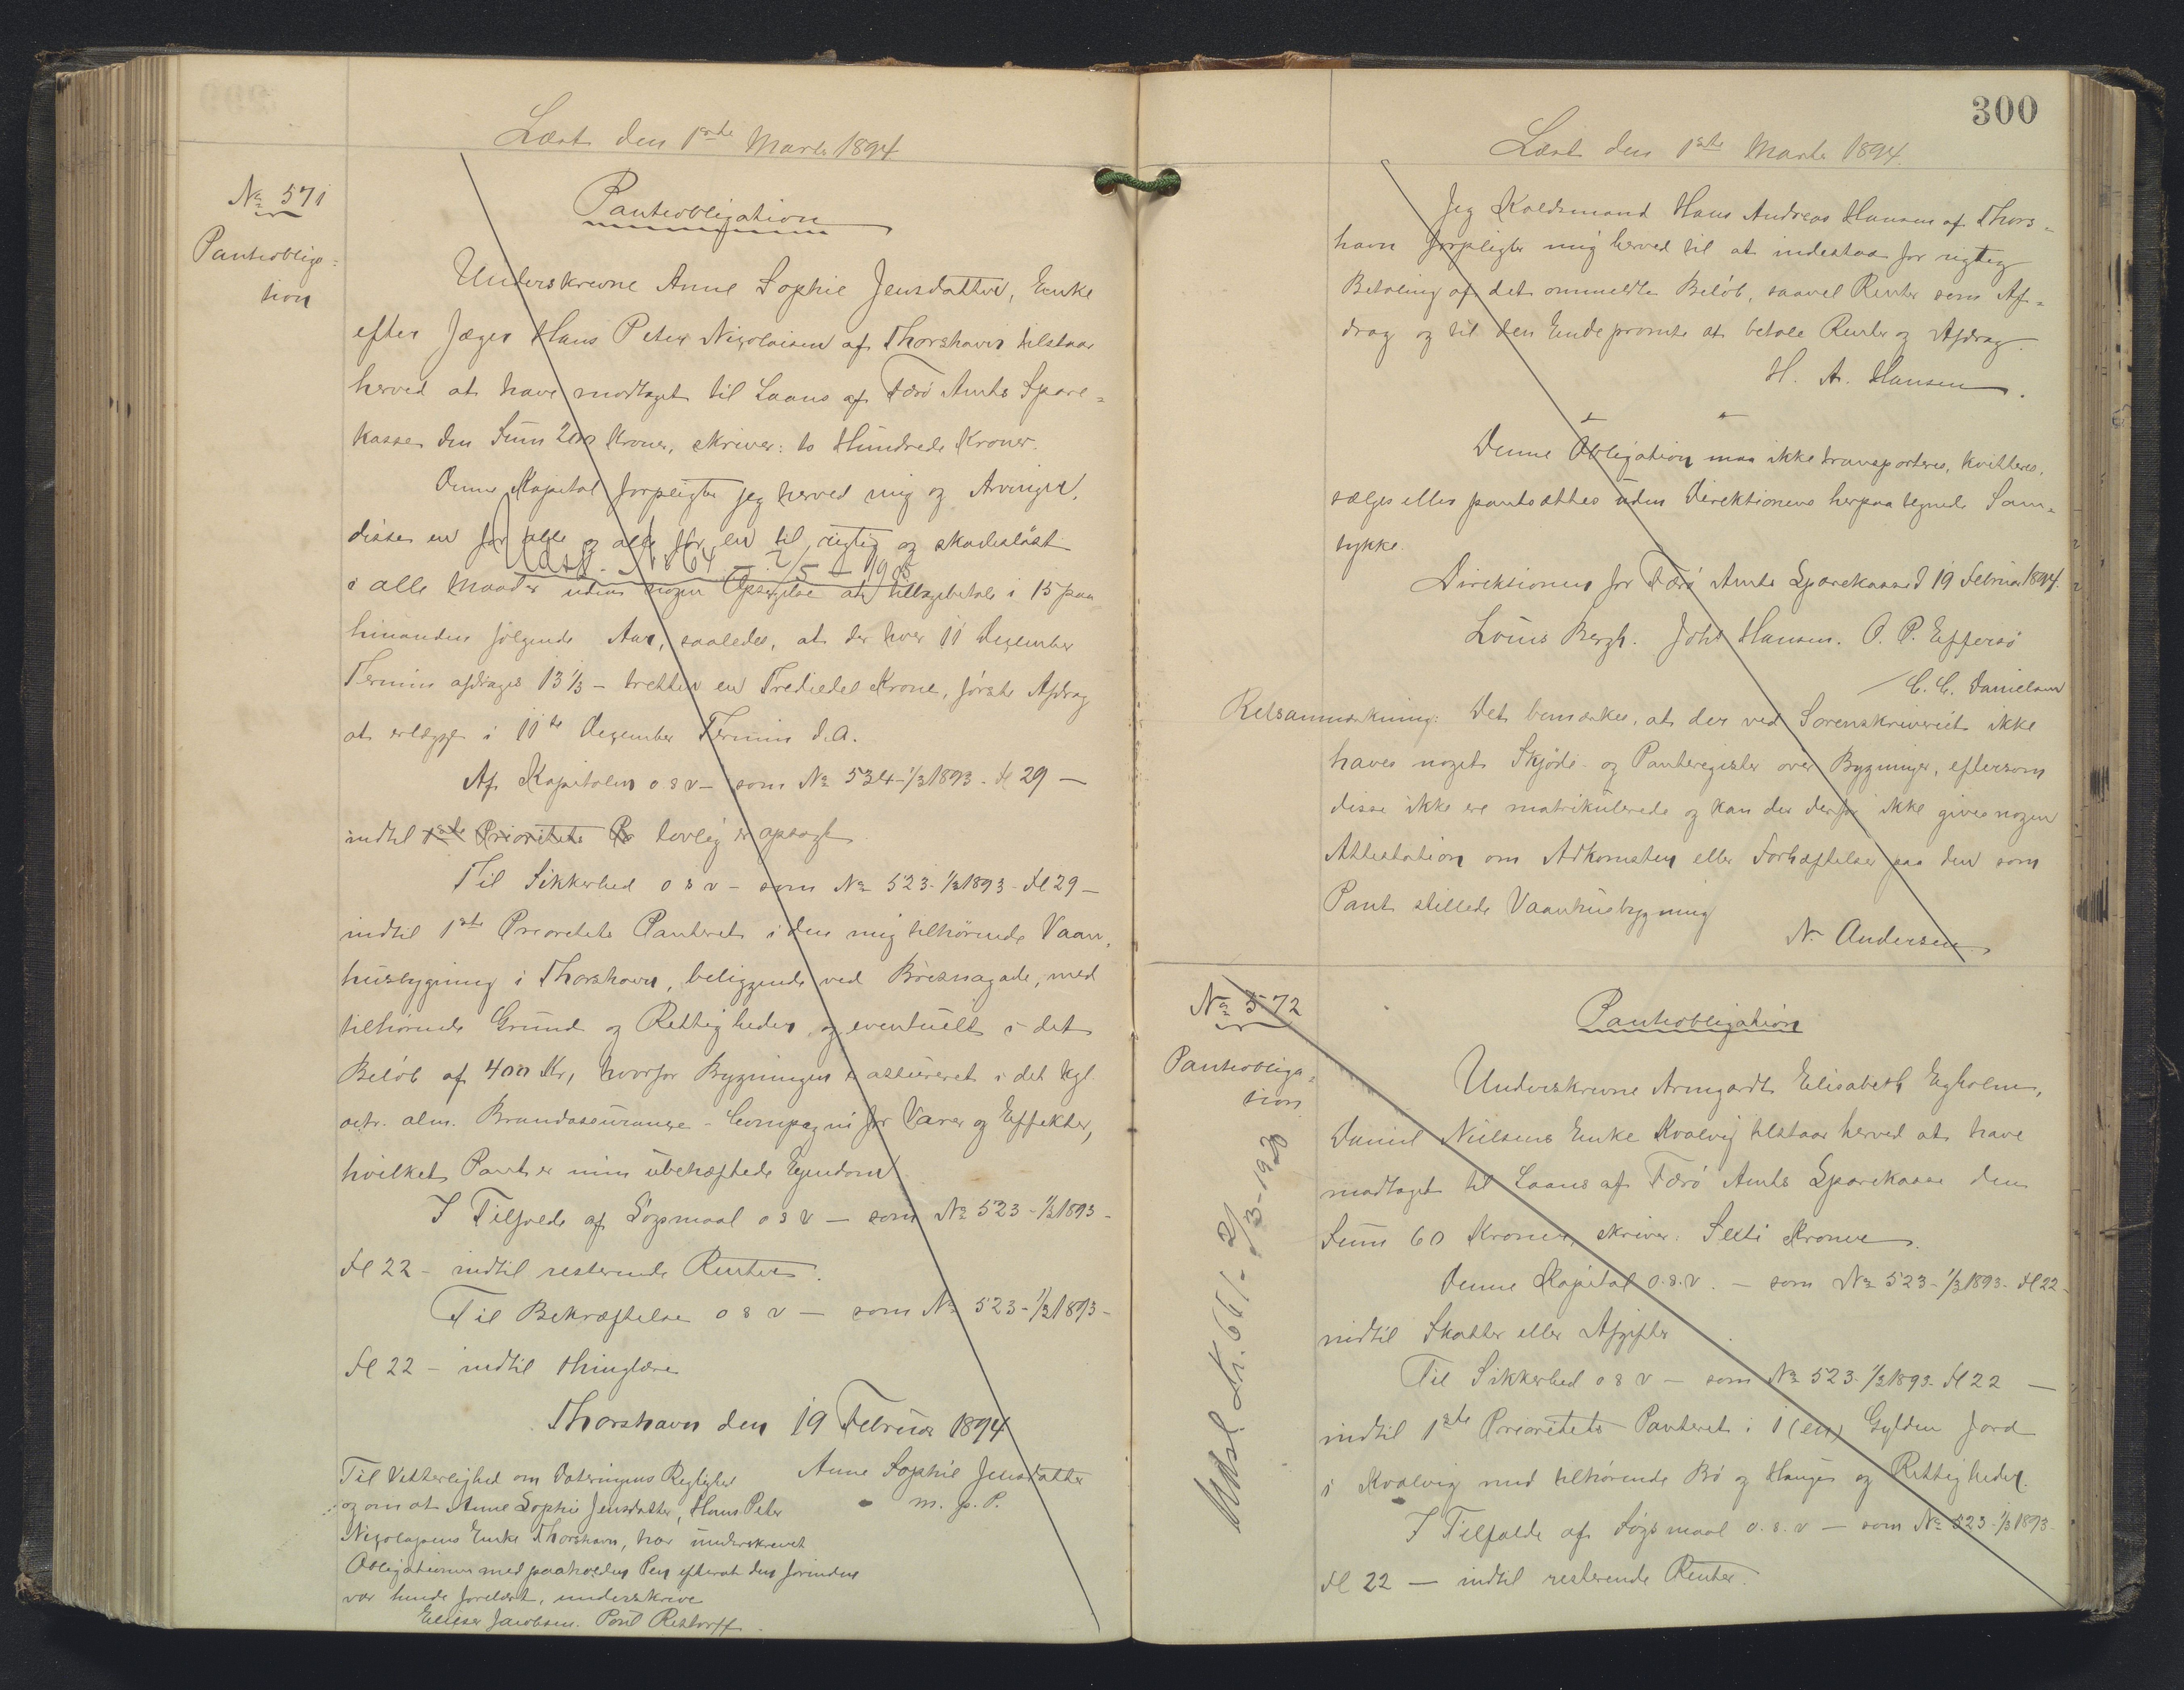 Læst den 1ste Marts 1894
No 571
Panteobliga=
tion
Panteobligation
Underskrevne Anne Sophie Jensdatter, Enke
efter Jæger Hans Peter Nicolaisen af Thorshavn tilstaar
herved at have modtaget til Laans af Færö Amts Spare=
kasse den Sum 200 Kroner, skriver: to Hundrede Kroner.
Denne Kapital forpligter jeg herved mig og Arvinger,
disse en for alle og alle for en til rigtig og skadesløst
Udsl. No 64 - 2/5 - 19
i alle Maader uden nogen Opsigelse at tilbagebetale i 15 paa
hinanden følgende Aar, saaledes, at der hver 11 Dezember
Termin afdrages 13 1/3 - tretten en Trediedel Krone, første Afdrag
at erlægge i 11te Dezember Termin d.A.
Af Kapitalen o s v - som No 534-1/3 1893 - fl 29 -
indtil 1ste Prioritets Pa lovlig er opsagt
Til Sikkerhed o s v - som No 523-1/3 1893 - fl 29 -
indtil 1ste Prioritets Panteret i den mig tilhørende Vaan,
husbygning i Thorshavn, beliggende ved Bresnagade, med
tilhørende Grund og Rettigheder og eventuelt i det
Beløb af 400 Kr, hvorfor Bygningen er assureret i det kgl.
octr. alm. Brandassurance-Compagni for Varer og Effekter,
hvilket Pant er min ubehæftede Ejendom
I Tilfælde af Søgsmaal o s v - som No 523-1/3 1893-
fl 22 - indtil resterende Renter.
Til Bekræftelse o s v - som No 523-1/3 1893-
fl 22 - indtil thinglæse
Thorshavn den 19 Februar 1894
Anne Sophie Jensdatter
m. p. P.
Til Vitterlighed om Dateringens Rigtighed
og om at Anne Sophie Jensdatter, Hans Peter
Nicolajsens Enke Thorshavn, har underskrevet
Obligationen med paaholden Pen efterat den forinden
var hende forelæst, underskrive
Elieser Jacobsen. Poul Restorff.
300
Læst den 1ste Marts 1894
Jeg Kaldsmand Hans Andreas Hansen af Thors=
havn forpligter mig herved til at indestaa for rigtig
Betaling af det ommeldte Beløb, saavel Renter som Af=
drag og til den Ende promte at betale Renter og Afdrag.
H. A. Hansen.
Denne Obligation maa ikke transporteres, kvitteres,
sælges eller pantsættes uden Direktionens herpaa tegnede Sam=
tykke.
Direktionen for Færö Amts Sparekasse d 19 Februar 1894.
Louis Bergh. Johs Hansen. O. P. Effersö
C. C. Danielsen
Retsanmærkning: Det bemærkes, at der ved Sorenskriveriet ikke
haves noget Skjöde- og Panteregister over Bygninger, eftersom
disse ikke ere matrikulerede og kan der derfor ikke gives nogen
Attestation om Adkomsten eller Forhæftelser paa den som
Pant stillede Vaanhusbygning
N. Andersen
No 572
Panteobliga=
tion
Udsl No. 661 - 2/3-1920
Panteobligation
Underskrevne Armgardt Elisabeth Egholm,
Daniel Nielsens Enke Kvalvig tilstaar herved at have
modtaget til Laans af Færö Amts Sparekasse den
Sum 60 Kroner, skriver: Sexti Kroner.
Denne Kapital o.s.v. - som No 523-1/3 1893- fl 22-
indtil Skatter eller Afgifter
Til Sikkerhed o s v - som No 523-1/3 1893- fl 22 -
indtil 1ste Prioritets Panteret i 1 (en) Gylden Jord
i Kvalvig med tilhørende Bö og Hauge og Rettigheder.
I Tilfælde af Søgsmaal o.s.v - som No 523-1/3 1893-
fl 22 - indtil resterende Renter.